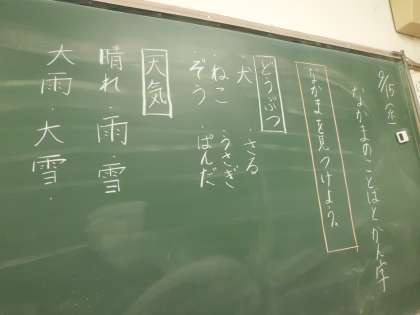 9/15(金)
なかまのことばとかん字
なかまを見つけよう。
どうぶつ
・犬・さる
・ねこ・うさぎ
・ぞう・ぱんだ
天気
晴れ・雨・雪
大雨・大雪・